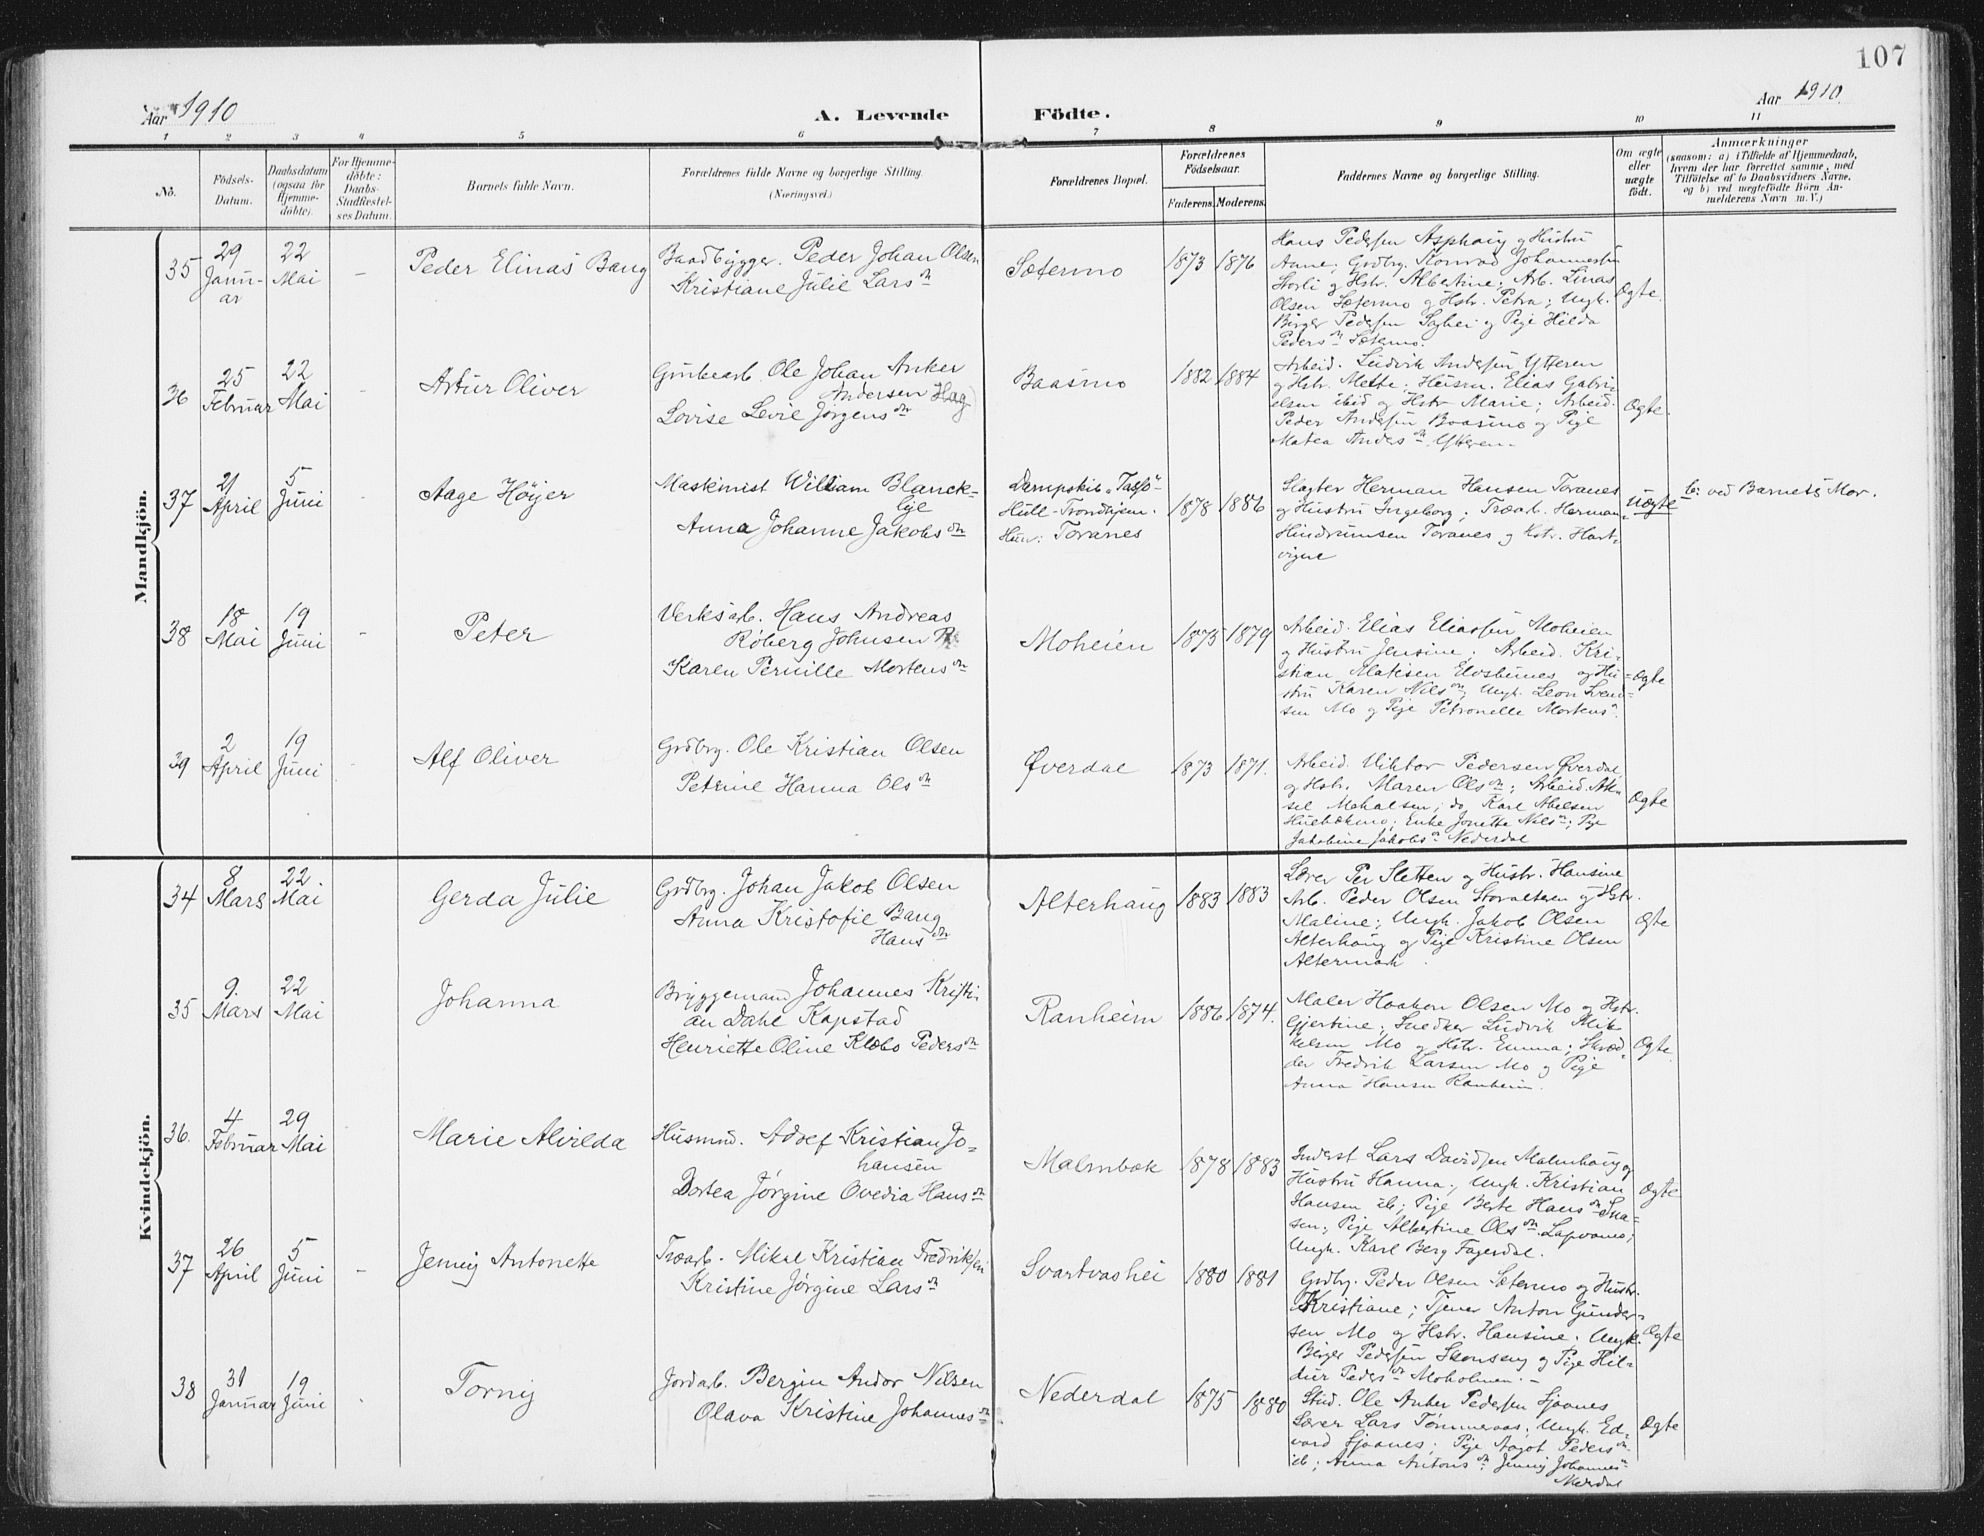 107
Aar 1910
A. Levende
Födte.
Aar 1910.
1 2 3 4 5 6 7 8 9 10 11
No.
Födsels-
Datum.
Daabsdatum
(ogsaa for
Hjemme-
döbte).
For Hjemme-
döbte:
Daabs-
Stadfæstel-
ses Datum.
Barnets fulde Navn.
Forældrenes fulde Navne og borgerlige Stilling.
(Næringsvei.)
Forældrenes Bopæl.
Forældrenes
Födselsaar.
Faderens. Moderens.
Faddernes Navne og borgerlige Stilling.
Om ægte
eller
uægte
født.
Anmærkninger
(saasom: a) i Tilfælde af Hjemmedaab,
hvem der har forrettet samme, med
Tilföielse af to Daabsvidners Navne,
og b) ved uægtefödte Börn An-
melderens Navn m. V.)
Mandkjön.
35
29
Janu-
ar
22
Mai
-
Peder Elinas Bang
Baadbygger. Peder Johan Olsen
Kristiane Julie Larsdn
Sætermo
1873 1876
Hans Pedersen Asphaug og Hustru
Anne; Grdbrg. Konrad Johannessen
Storli og Hstr. Albertine; Arb. Linas
Olsen Sætermo og Hstr. Petra; Ungk.
Birger Pedersen og Pige Hilda
Pedersdn Sætermo.
Ægte.
36
25
Februar
22
Mai
Artur Oliver
Grubearb. Ole Johan Anker
Andersen Hag
Lovise Levie Jørgensdn
Baasmo
1882 1884
Arbeid. Ludvik Andersen Ytteren
og Hstr. Mette; Husm. Elias Gabri-
elsen ibid og Hstr Marie; Arbeid.
Peder Andersen Baasmo og Pige
Matea Andersdn Ytteren.
Ægte.
37
21
April
5
Juni
-
Aage Høyer
Maskinist William Blanck-
lye
Anna Johanne Jakobsdn
Dampskib "Tasso"
Hull-Trondhjem.
Hun: Toranes
1878 1886
Slagter Herman Hansen Toranes
og Hustru Ingeborg; Træarb. Herman
Hindrumsen Toranes og Hstr. Hart-
vigne
Uægte
b: ved Barnets Mor.
38
18
Mai
19
Juni
-
Peter
Verksarb. Hans Andreas
Røberg Johnsen
Karen Pernille Mortensdn
Moheien
1875 1879
Arbeid. Elias Eliassen Moheien
og Hustru Jensine; Arbeid. Kri-
stian Matisen og Hu-
stru Karen Nilsdn; Ungk. Leon Svend-
sen Mo og Pige Petronelle Mortensdn.
Ægte
39
2
April
19
Juni
-
Alf Oliver
Grdbrg. Ole Kristian Olsen
Petrine Hanna Olsdn
Øverdal
1873 1871.
Arbeid. Viktor Pedersen Øverdal
og Hstr. Maren Olsdn; Arbeid. Ak-
sel Mikalsen; do Karl Abelsen
; Enke Jonette Nilsdn; Pige
Jakobine Jakobsdn Nederdal
Ægte
Kvindekjön.
34
8
Mars
22
Mai
Gerda Julie
Grdbrg. Johan Jakob Olsen
Anna Kristofie Bang
Hansdn
Alterhaug
1883 1883
Lærer Per Sletten og Hustr. Hansine
Arb. Peder Olsen Storalteren og Hstr.
Maline; Ungk. Jakob Olsen
Alterhaug og Pige Kristine Olsen
Altermark.
Ægte
35
9.
Mars
22
Mai
Johanna
Bryggemand Johannes Kristi-
an Dahl Kopstad
Henriette Oline Klæbo Pedersdn
Ranheim
1886 1874.
Maler Haakon Olsen Mo og Hstr.
Gjertine; Snedker Ludvik Mik-
kelsen Mo og Hstr. Emma; Skræd-
der Fredrik Larsen Mo og Pige
Anna Hansen Ranheim.
Ægte
36.
4
Februar
29
Mai
Marie Alvilda
Husmd. Adolf Kristian Jo-
hansen
Dortea Jørgine Ovedia Hansdn
Malmbæk
1878 1883
Inderst Lars Davidsen Malmhaug og
Hustru Hanna; Ungk. Kristian
Hansen ib; Pige Berte Hansdn
sen; Pige Albertine Olsdn
Ungk. Karl Berg Fagerdal.
Ægte
37
26
April
5
Juni
-
Jenny Antonette
Træarb. Mikal Kristian Fredriksen
Kristine Jørgine Larsdn
Svartvashei
1880 1881
Grdbrg. Peder Olsen Sætermo og Hustr.
Kristiane; Tjener Anton Gunder-
sen Mo og Hstr. Hansine. Ungk.
Birger Pedersen og Pige Hil-
dur Pedersdn Moholmen.-
Ægte
38
31
Januar
19
Juni
-
Torny
Jordarb. Bergin Andor Nilsen
Olava Kristine Johannesdn
Nederdal
1875 1880
Stud. Ole Anker Pedersen Sjaanes
Lærer Lars Tømmeraas; Ungk. Ed-
vard Sjaanes; Pige Aagot Pedersdn
ib; Anna Antonsdn; Jenny Johannesdn
Nederdal
Ægte